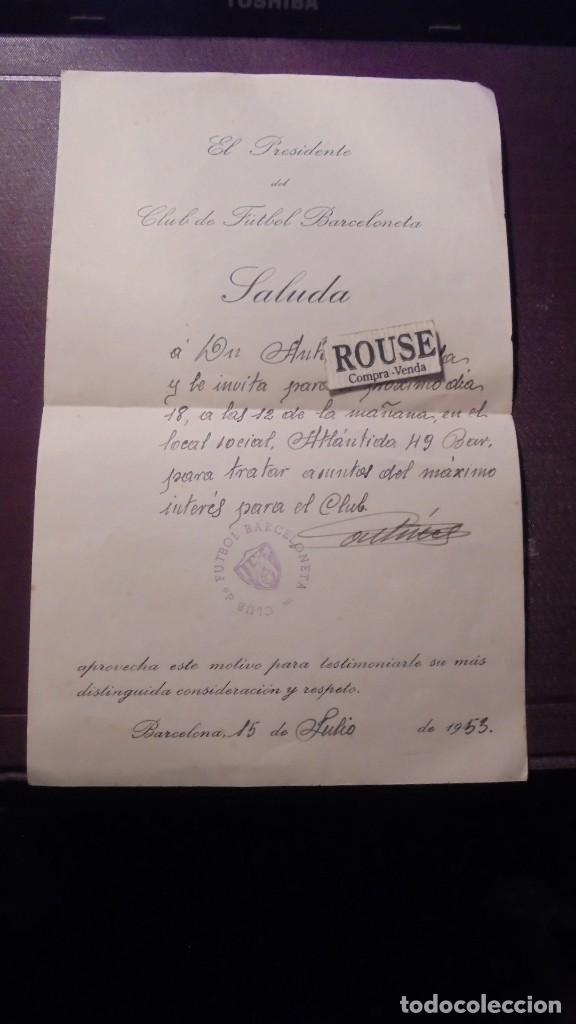 TOSHIBA
El Presidente
del
Club de Fútbol Barceloneta
Saluda
á Dn
ROUSE
Compra-Venda
y le invita para próximo día
18, a las 12 de la mañana, en el
local social, Atlántida 49 Bar,
para tratar asuntos del máximo
interés para el Club.
CLUB de FUTBOL BARCELONETA
aprovecha este motivo para testimoniarle su más
distinguida consideración y respeto.
Barcelona, 15 de Julio de 1953.
todocoleccion.net